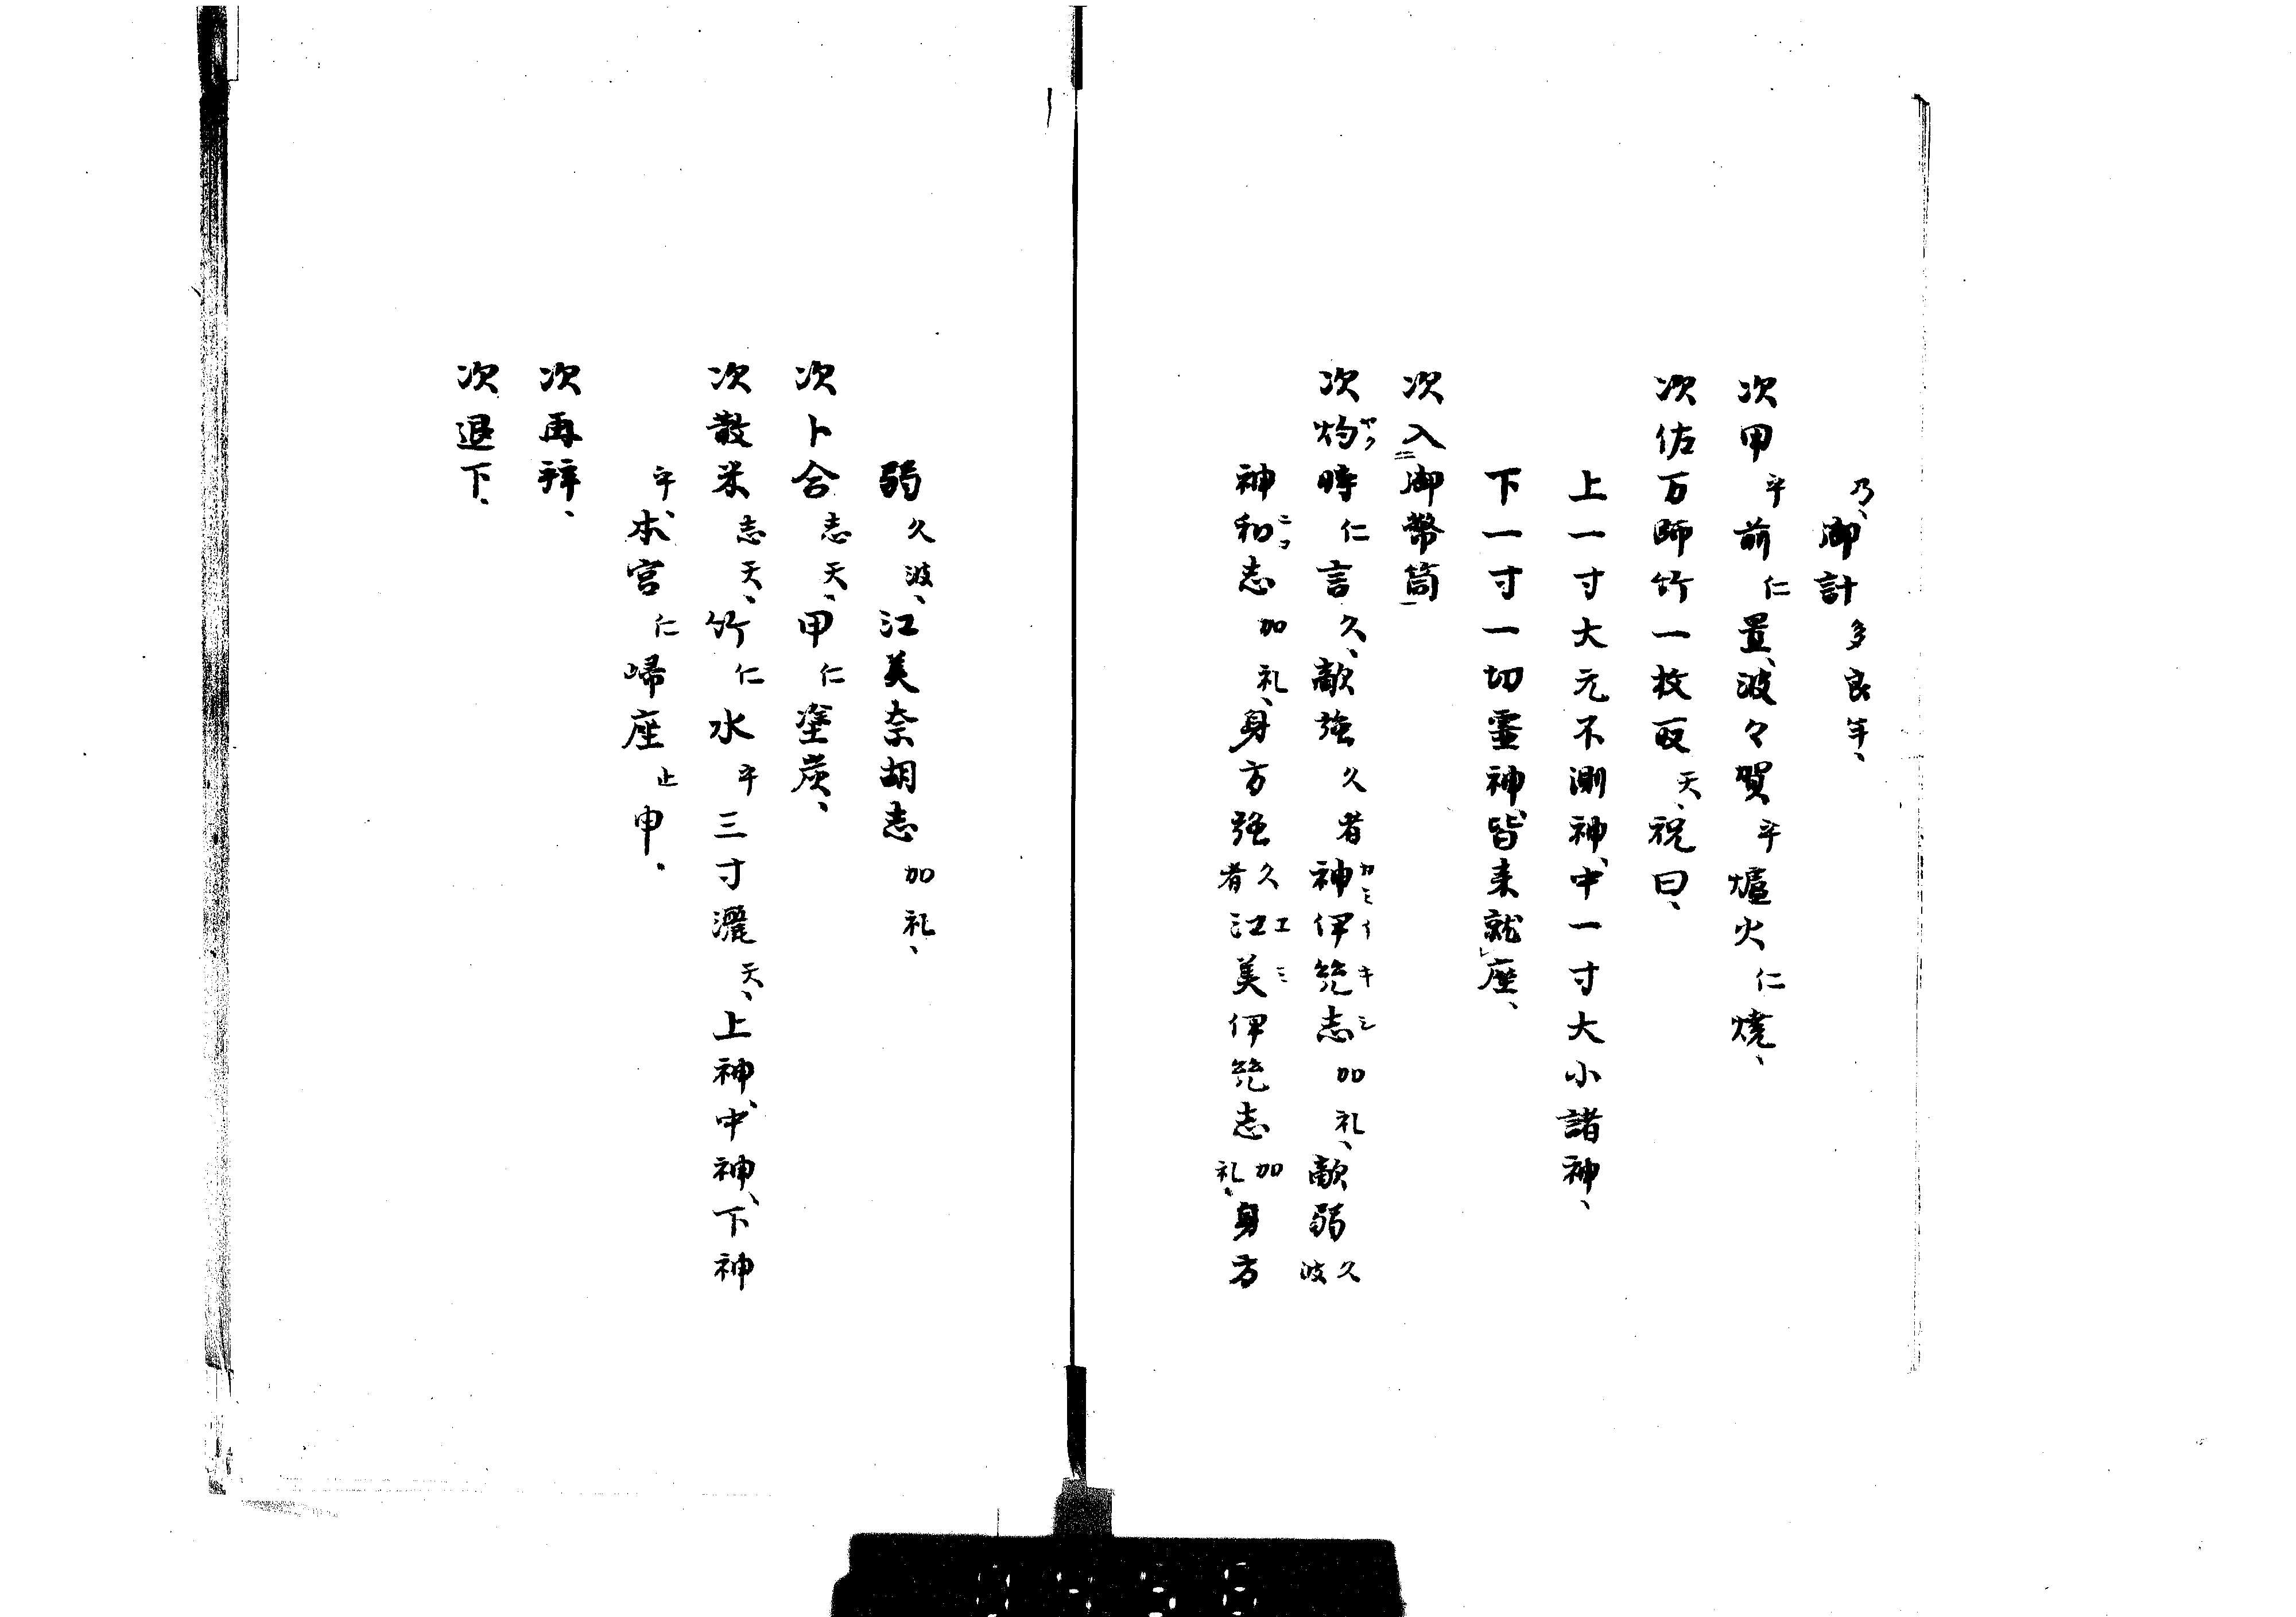 乃、御計多良牟、
次甲乎前仁置、波々賀乎爐火仁燒、
次佐万師竹一枚取天、祝曰、
上一寸大元不測神、中一寸大小諸神、
下一寸一切靈神、皆来就レ座、
次入二御幣筒一
次灼ヤク時仁言久、敵強久者神カミ伊イ岐キ志シ加礼、敵弱久波
神和ニコ志加礼、身方強久者江エ美ミ伊岐志加礼、身方
弱久波、江美奈胡志加礼、
次卜合志天、甲仁塗炭、
次散米志天、竹仁水乎三寸灑天、上神、中神、下神
乎、本宮仁帰座止申、
次再拜、
次退下、